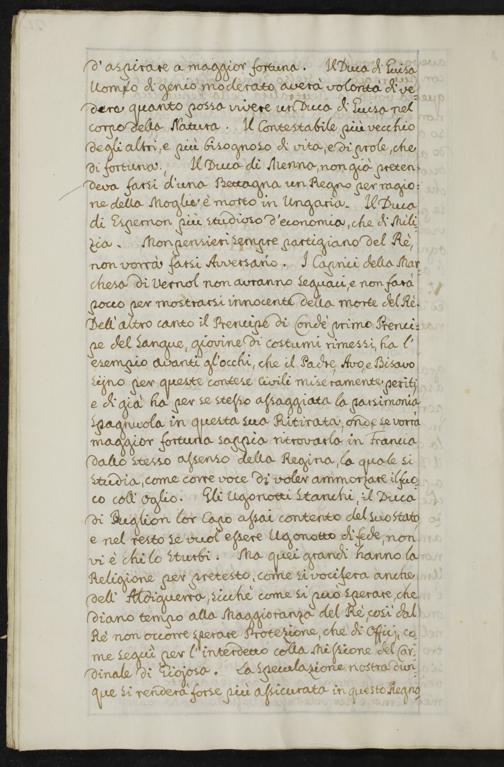 d'aspirare a maggior fortuna. Il Duca di Guisa
Uomo di genio moderato, averà volontà di ve-
dere quanto possa vivere un Duca di Guisa nel
corpo della Natura. Il Contestabile più vecchio
degli altri, e più bisognoso di vita, e di prole, che
di fortuna. Il Duca di Menna, non già preten-
deva farsi d'una Bettagna un Regno per ragio-
ne della Moglie è morto in Ungaria. Il Duca
di Espernon più studioso d'economia, che di Mili-
zia. Monpensieri sempre partigiano del Rè,
non vorrà farsi Avversario. I Caprici della Mar
chesa di Vernol non avranno seguaci, e non farà
pocco per mostrarsi innocente della morte del Rè.
Dell'altro canto il Prencipe di Condè primo Prenci-
pe del Sangue, giovine di costumi rimessi, ha l'
esempio avanti gl'occhi, che il Padre, Avo, e Bisavo
sijno per queste contese civili miseramente periti
e di già ha per se stesso assaggiata la parsimonia
Spagnuola in questa sua Ritirata, onde se vorrà
maggior fortuna sappia ritrovarla in Francia
dallo stesso assenso della Regina, la quale si
studia, come corre voce di voler ammorzare il fuo-
co coll'oglio. Gli Ugonotti stanchi, il Duca
di Buglion lor Capo assai contento del suo stato
e nel resto se vuol essere Ugonotto di fede, non
vi è chi lo sturbi. Ma quei grandi hanno la
Religione per pretesto, come si vocifera anche
dell' Aldiguerra, sicchè come si può sperare, che
diano tempo alla Maggioranza del Rè, così dal
Rè non occorre sperare Protezione, che di Officij, co-
me seguì per l'interdetto colla Missione del Car-
dinale di Giojosa. La speculazione nostra dun-
que si renderà forse più assicurata in questo Regno